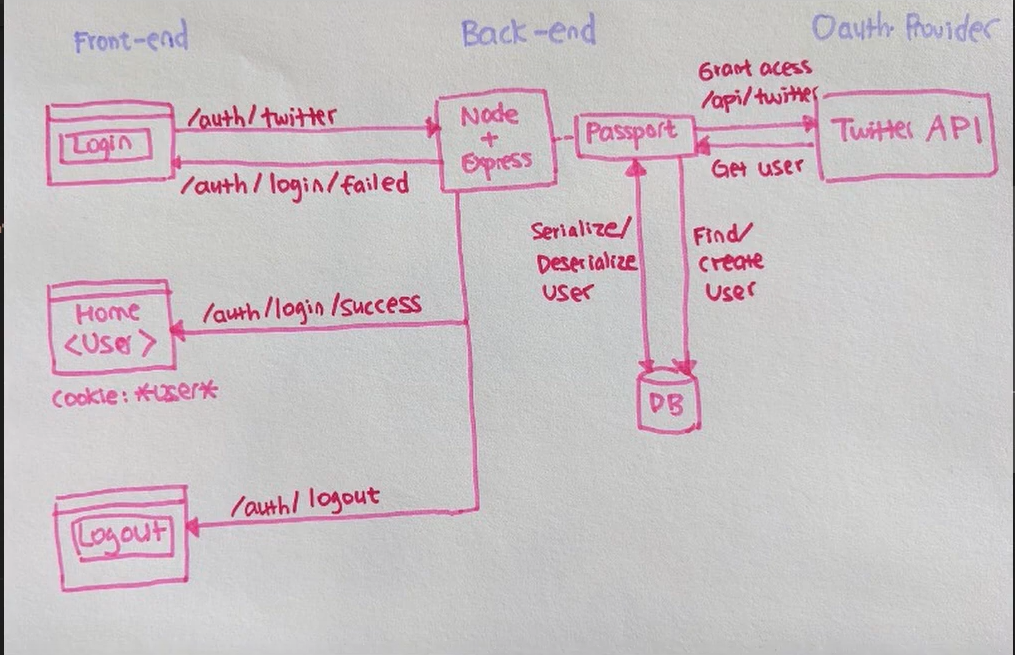 Front-end
Back-end
Oauth Provider
Login
/auth/twitter
/auth/login/failed
Node
+
Express
Passport
Grant acess
/api/twitter
Get user
Twitter API
Serialize/
Deserialize
user
Find/
create
user
DB
Home
<User>
/auth/login/success
cookie: *user*
Logout
/auth/logout